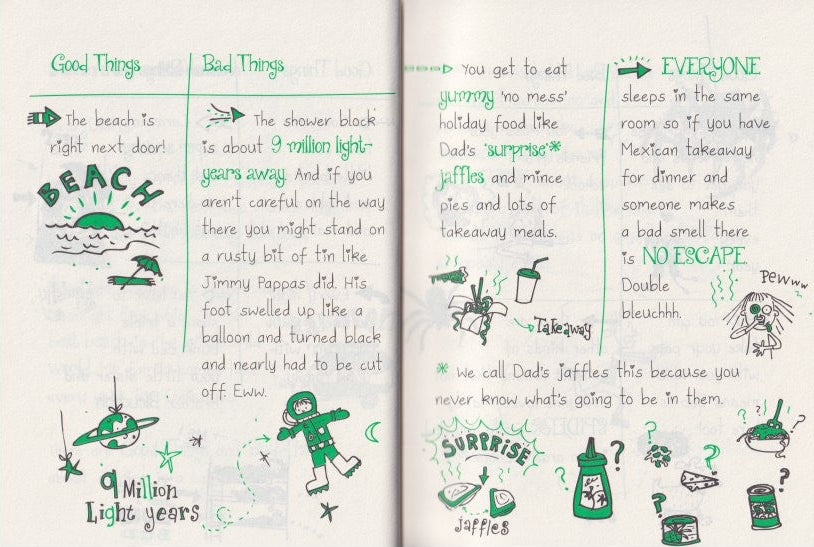 Good Things
The beach is
right next door!
BEACH
9 Million
Light years
Bad Things
The shower block
is about 9 million light-
years away. And if you
aren't careful on the way
there you might stand on
a rusty bit of tin like
Jimmy Pappas did. His
foot swelled up like a
balloon and turned black
and nearly had to be cut
off. Eww.
You get to eat
yummy 'no mess'
holiday food like
Dad's 'surprise'*
jaffles and mince
pies and lots of
takeaway meals.
Takeaway
EVERYONE
sleeps in the same
room so if you have
Mexican takeaway
for dinner and
someone makes
a bad smell there
is NO ESCAPE.
Double
bleuchhh.
Pewww
* We call Dad's jaffles this because you
never know what's going to be in them.
SURPRISE
jaffles
?
?
?
?
?
?
?